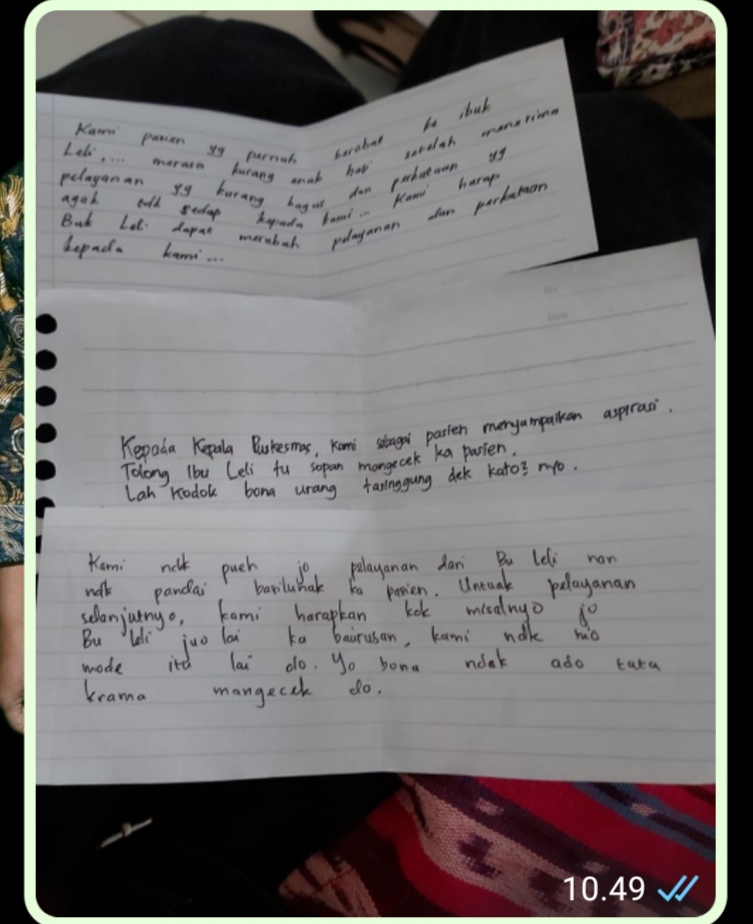 Kami pasien yg pernah berobat ke ibuk
Leli,... merasa kurang enak hati setelah menerima
pelayanan yg kurang bagus dan perkataan yg
agak tdk sedap kepada kami... Kami harap
Buk Leli dapat merubah pelayanan dan perkataan
kepada kami...
No.
Date
Kepada Kepala Puskesmas, kami sebagai pasien menyampaikan aspirasi.
Tolong Ibu Leli tu sopan mangecek ka pasien.
Lah Kodok bona urang tasinggung dek kato2 nyo.
Kami ndk pueh jo pelayanan dari Bu Leli nan
ndk pandai barilunak ka pasien. Untuak pelayanan
selanjutnyo, kami harapkan kok misalnyo jo
Bu Leli juo lai ka baurusan, kami ndk nio
mode itu lai do. Yo bona ndak ado tata
krama mangecek do.
10.49